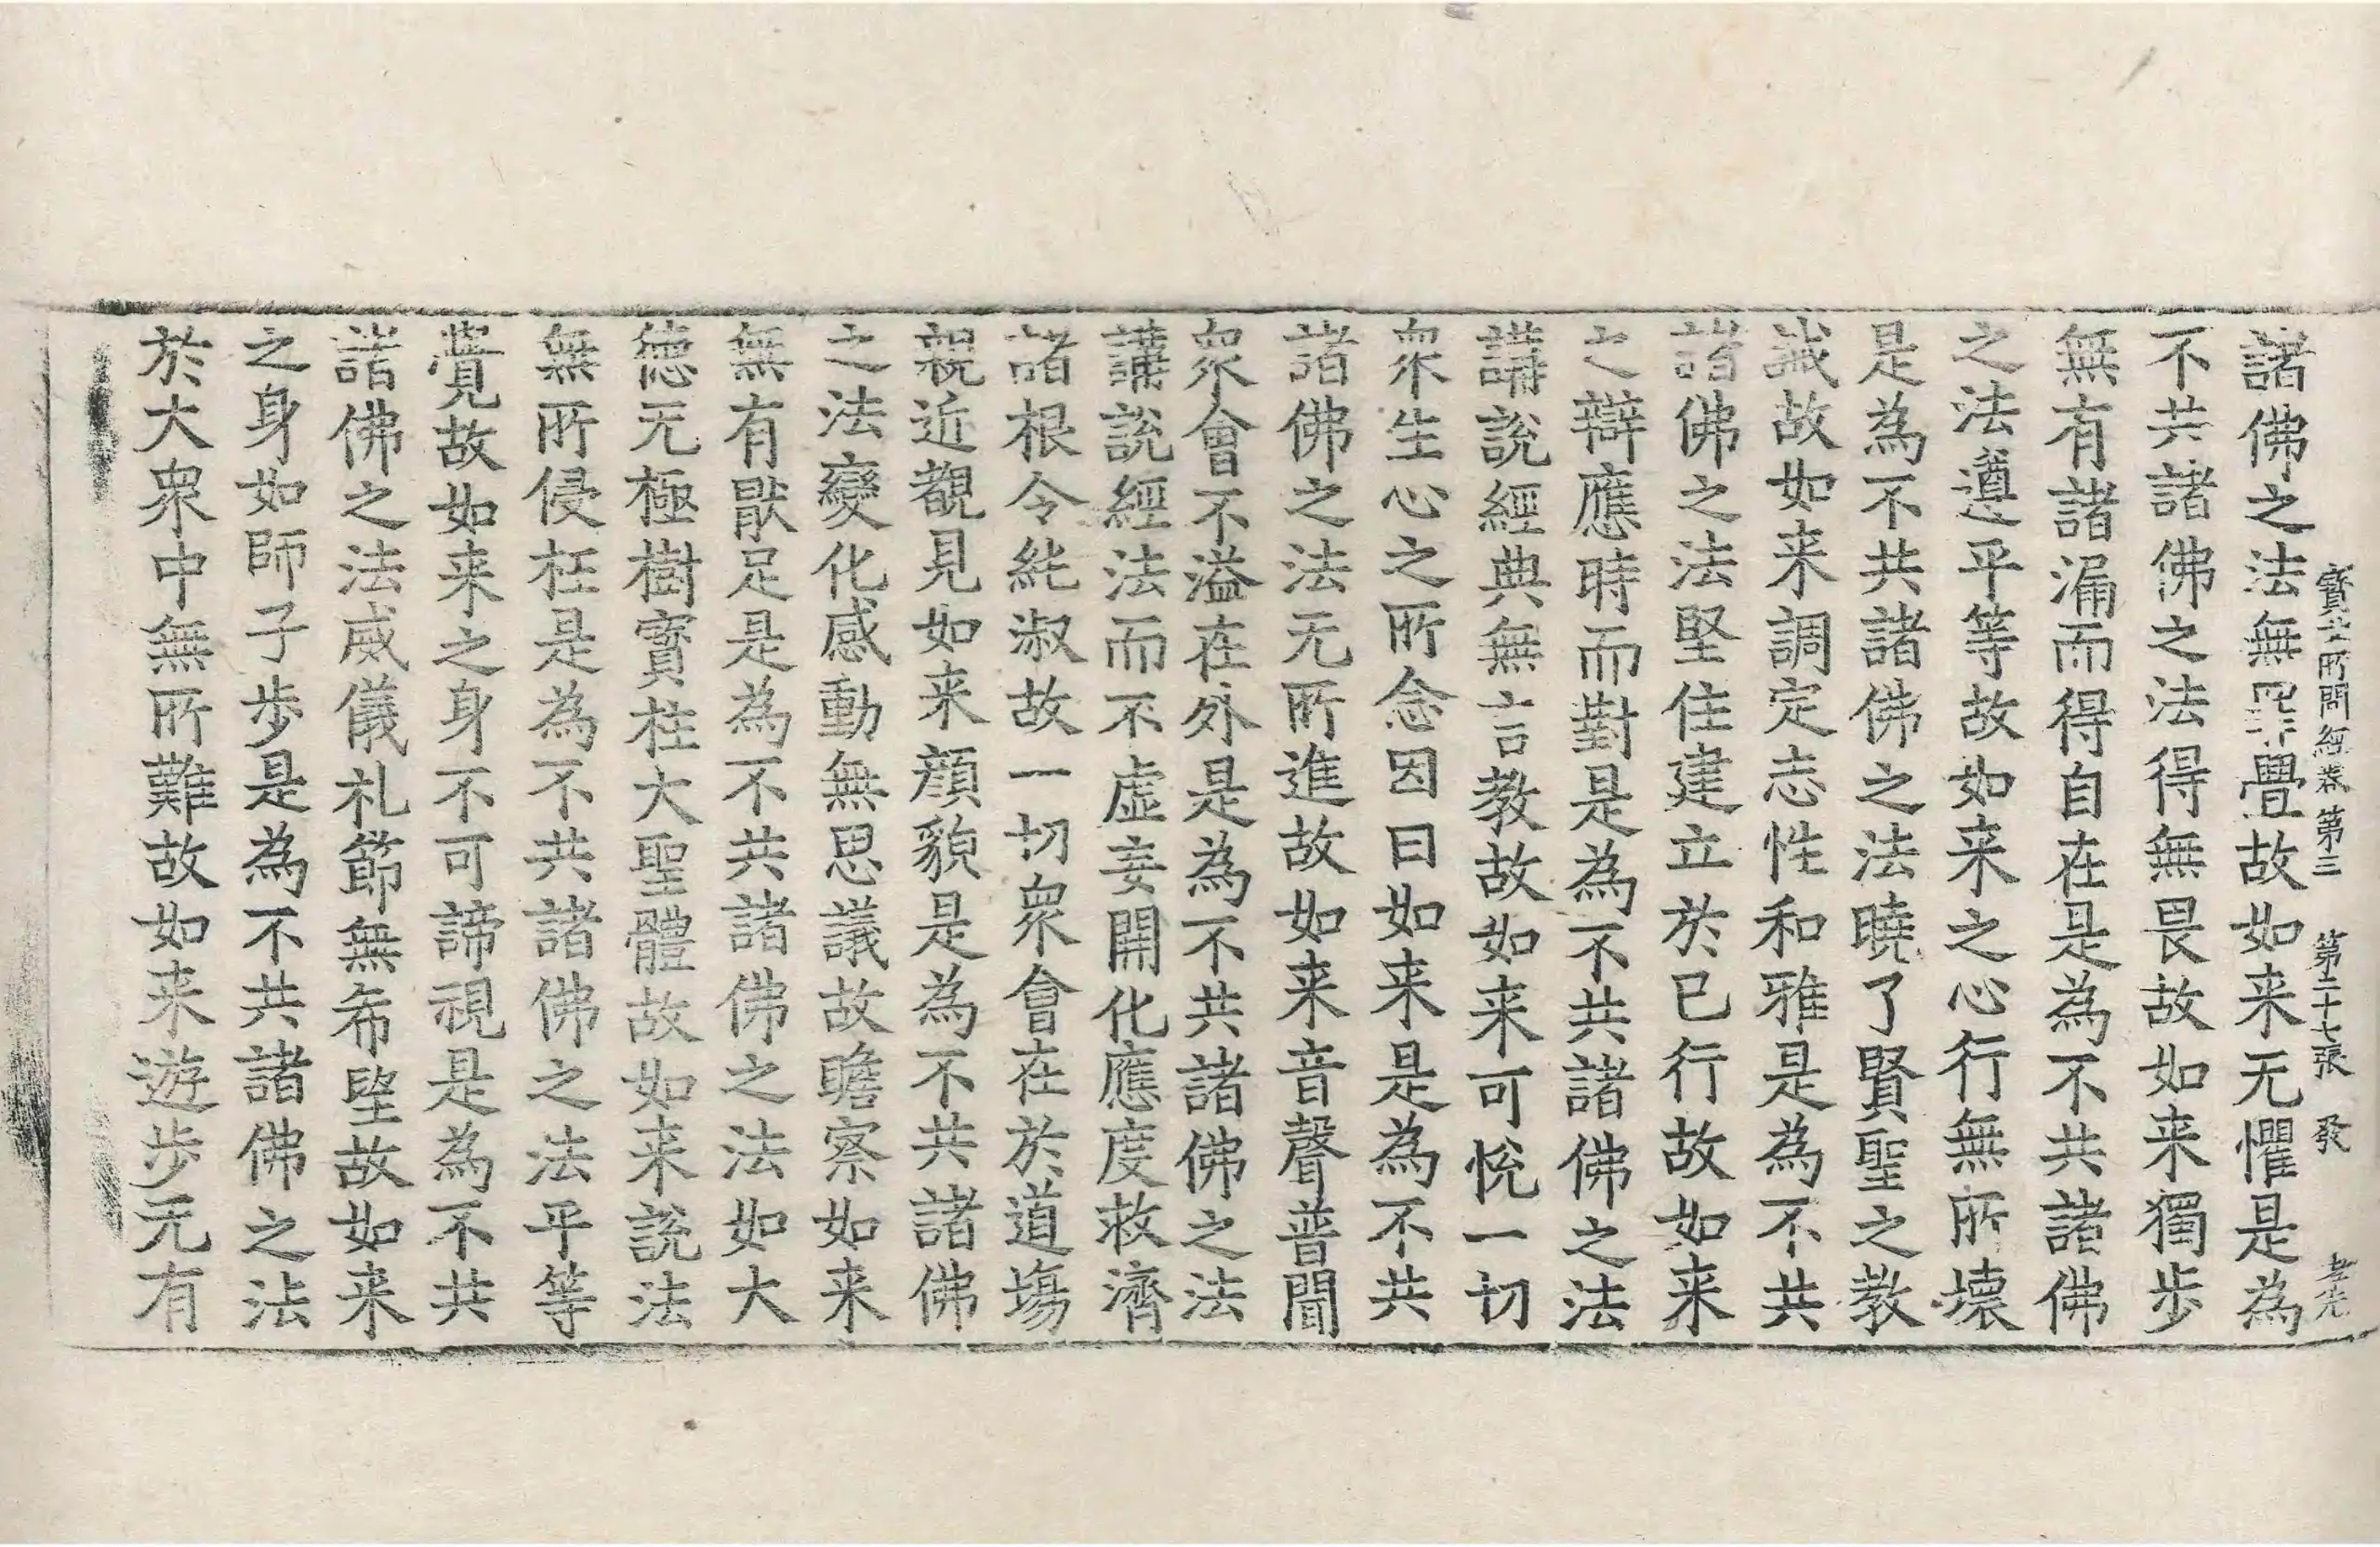 寶女所問經卷第三 第二十七張 發 孝光
諸佛之法無罪舋故如来无懼是為
不共諸佛之法得無畏故如来獨步
無有諸漏而得自在是為不共諸佛
之法遵平等故如来之心行無所壞
是為不共諸佛之法曉了賢聖之教
誡故如来調定志性和雅是為不共
諸佛之法堅住建立於已行故如来
之辯應時而對是為不共諸佛之法
講說經典無言教故如来可悅一切
衆生心之所念因曰如来是為不共
諸佛之法无所進故如来音聲普聞
衆會不溢在外是為不共諸佛之法
講說經法而不虛妄開化應度救濟
諸根令純淑故一切衆會在於道場
親近覩見如来顔貌是為不共諸佛
之法變化感動無思議故瞻察如来
無有猒足是為不共諸佛之法如大
德无極樹寶柱大聖體故如来說法
無所侵枉是為不共諸佛之法平等
覺故如来之身不可諦視是為不共
諸佛之法威儀礼節無希望故如来
之身如師子步是為不共諸佛之法
於大衆中無所難故如来遊步无有